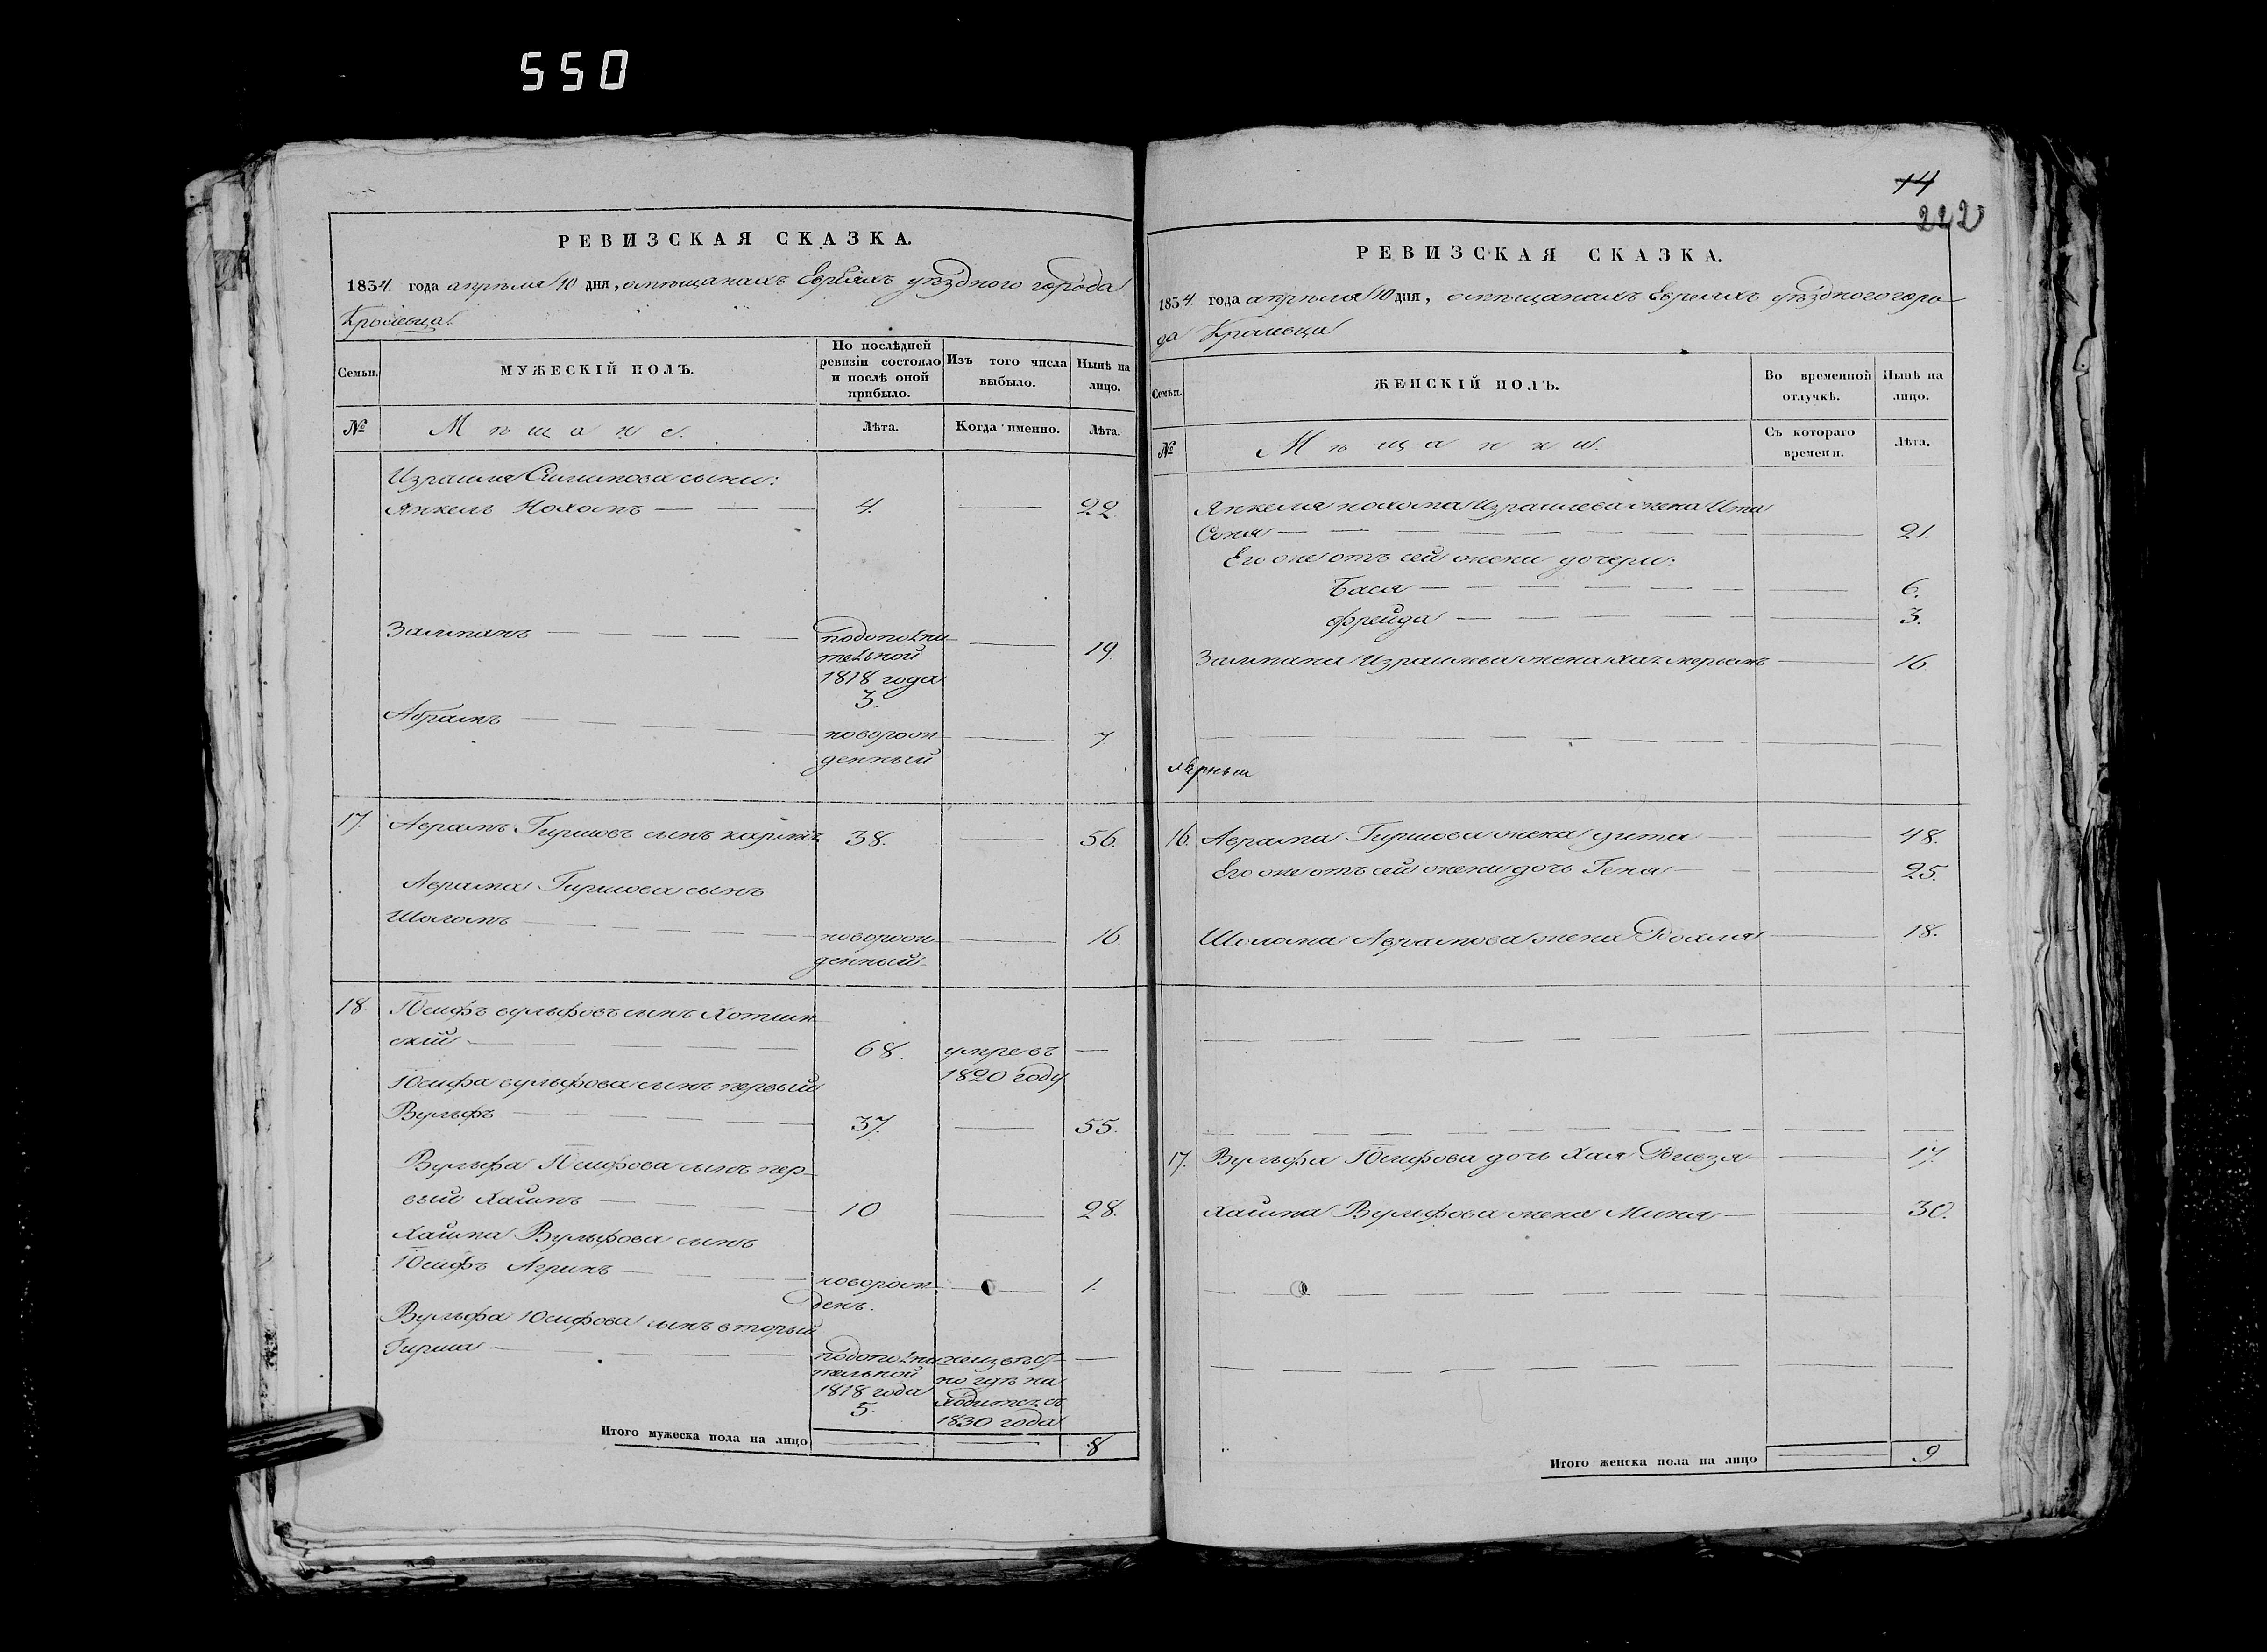 550
РЕВИЗСКАЯ СКАЗКА.
1834. года апрѣля 10 дня, о мѣщанахъ Евреяхъ уѣздного города
Кролевца.
Семьи.
МУЖЕСКІЙ ПОЛЪ.
По послѣдней ревизіи состояло и послѣ оной прибыло.
Изъ того числа выбыло.
Нынѣ на лицо.
№
Мѣщане.
Лѣта.
Когда именно.
Лѣта.
Израиля сыни:
Янкель Нохомъ — 4. — 22
Залманъ — подополни-
тельной
1818 года
3. — 19.
Абрамъ — новорож
денный — 7
17. Аврамъ Гиршовъ сынъ 38. — 56.
Аврама Гиршова сынъ
Шоломъ — новорож
денный — 16.
18. Юсифъ вульфовъ сынъ Хотин
скій — 68. умре въ —
1820 году
Юсифа вульфова сынъ первый
Вульфъ — 37. — 55.
Вульфа Юсифова сынъ пер-
вый Хаимъ — 10 — 28.
Хаима Вульфова сынъ
Юсифъ — новорож
денъ. — 1.
Вульфа Юсифова сынъ вторый
Гирша — подополни
тельной
1818 года
5.
неизвѣст-
но гдѣ на
ходитса съ
1830 года —
Итого мужеска пола на лицо — — 8
14
222
РЕВИЗСКАЯ СКАЗКА.
1834. года апрѣля 10 дня, о мѣщанахъ Евреяхъ уѣздного горо-
да Кролевца
Семьи.
ЖЕНСКІЙ ПОЛЪ.
Во временной отлучкѣ.
Нынѣ на лицо.
№
Мѣщанки.
Съ котораго времени.
Лѣта.
Янкеля нохома Израилева жена Ита
Соня — — 21.
Его же отъ сей жени дочери:
Бася — — 6.
Фрейда — — 3.
Залмана Израилева жена — 16
16. Аврама Гиршова жена — 48.
Его же отъ сей жени дочь Геня — — 25.
Шолома Аврамова жена Рохля — 18.
17. Вульфа Юсифова дочь Хая — 17.
Хаима Вульфова жена Миня — — 30.
Итого женска пола на лицо — 9